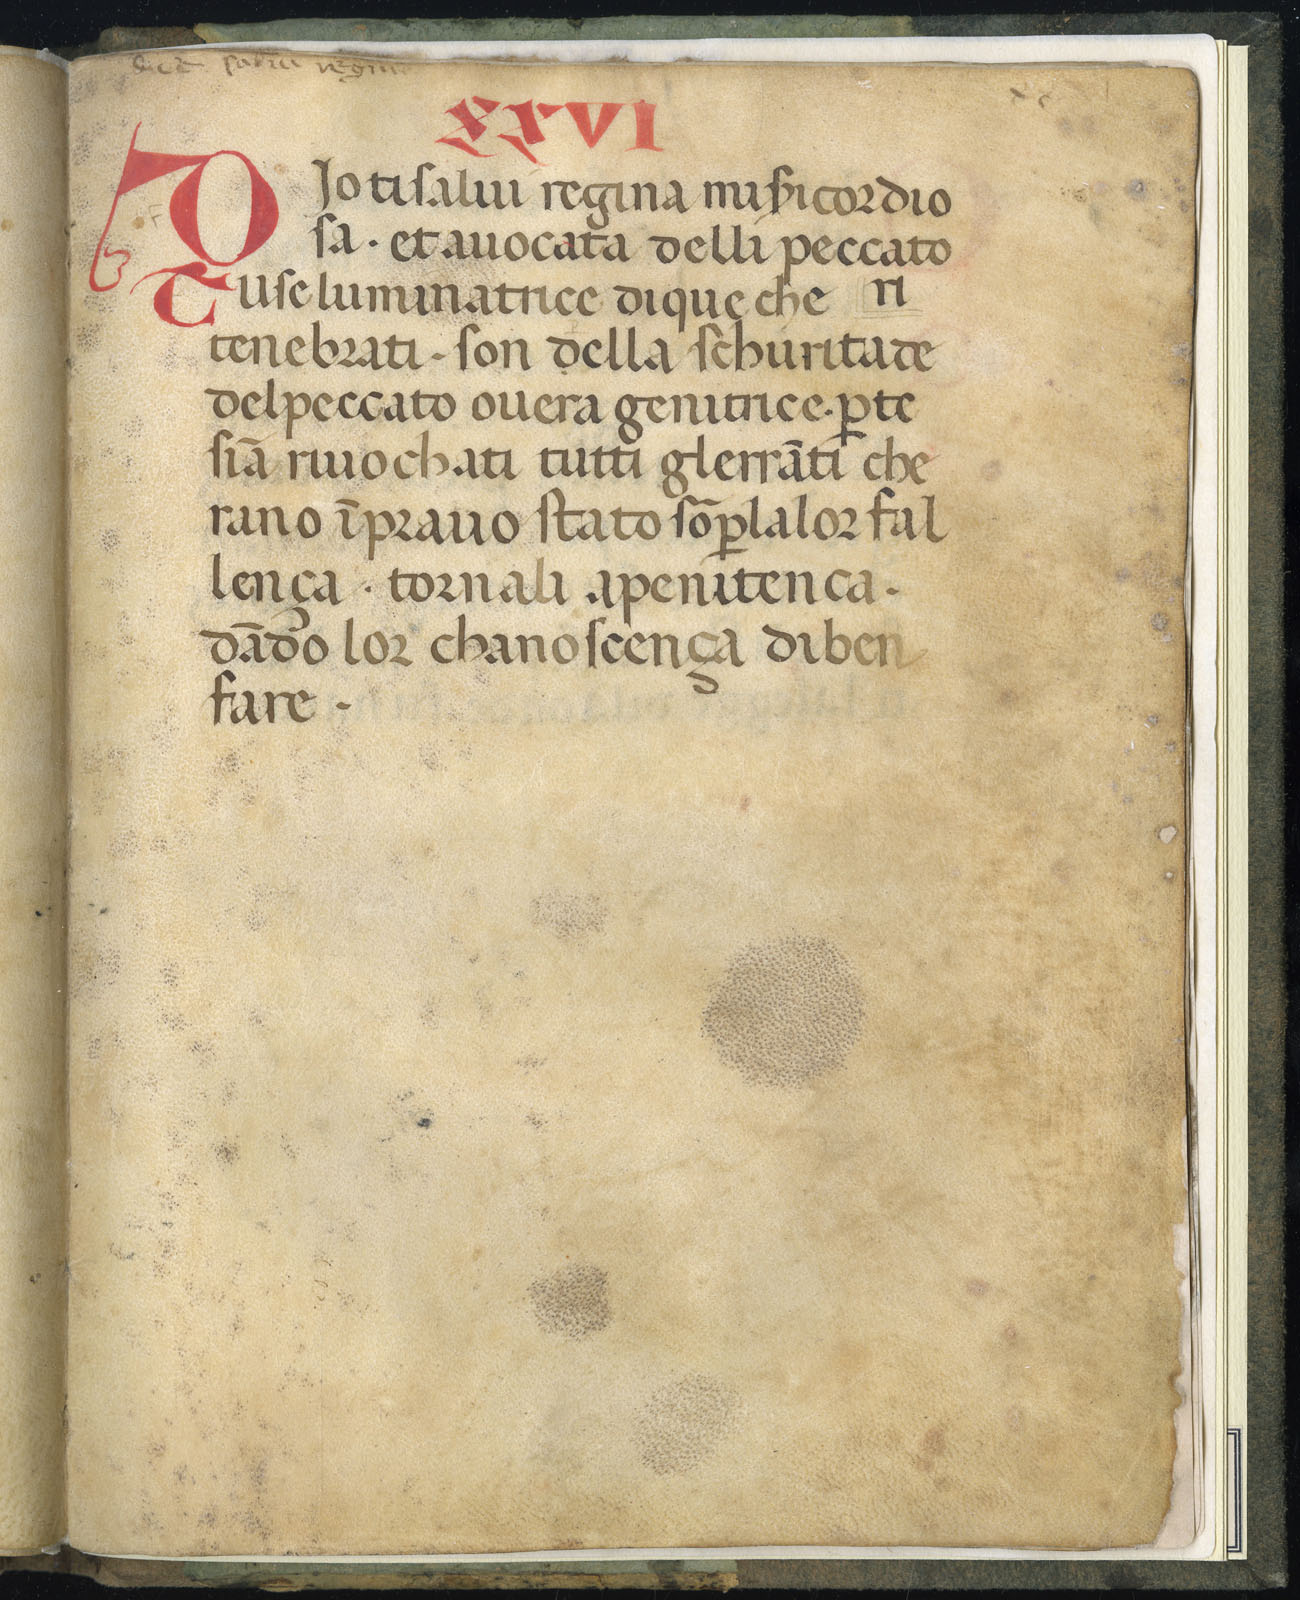 salui regina
XXVI
DJo ti salui regina misicordio
sa · et auocata delli peccato
Tu se luminatrice di que che ri
tenebrati · son della schuritade
del peccato o uera genitrice · ꝑ te
siā riuochati tutti gl errāti che
rano ī prauo stato sō ꝑ la lor fal
lença · tornali a penitenca ·
dādo lor chanoscença di ben
fare ·